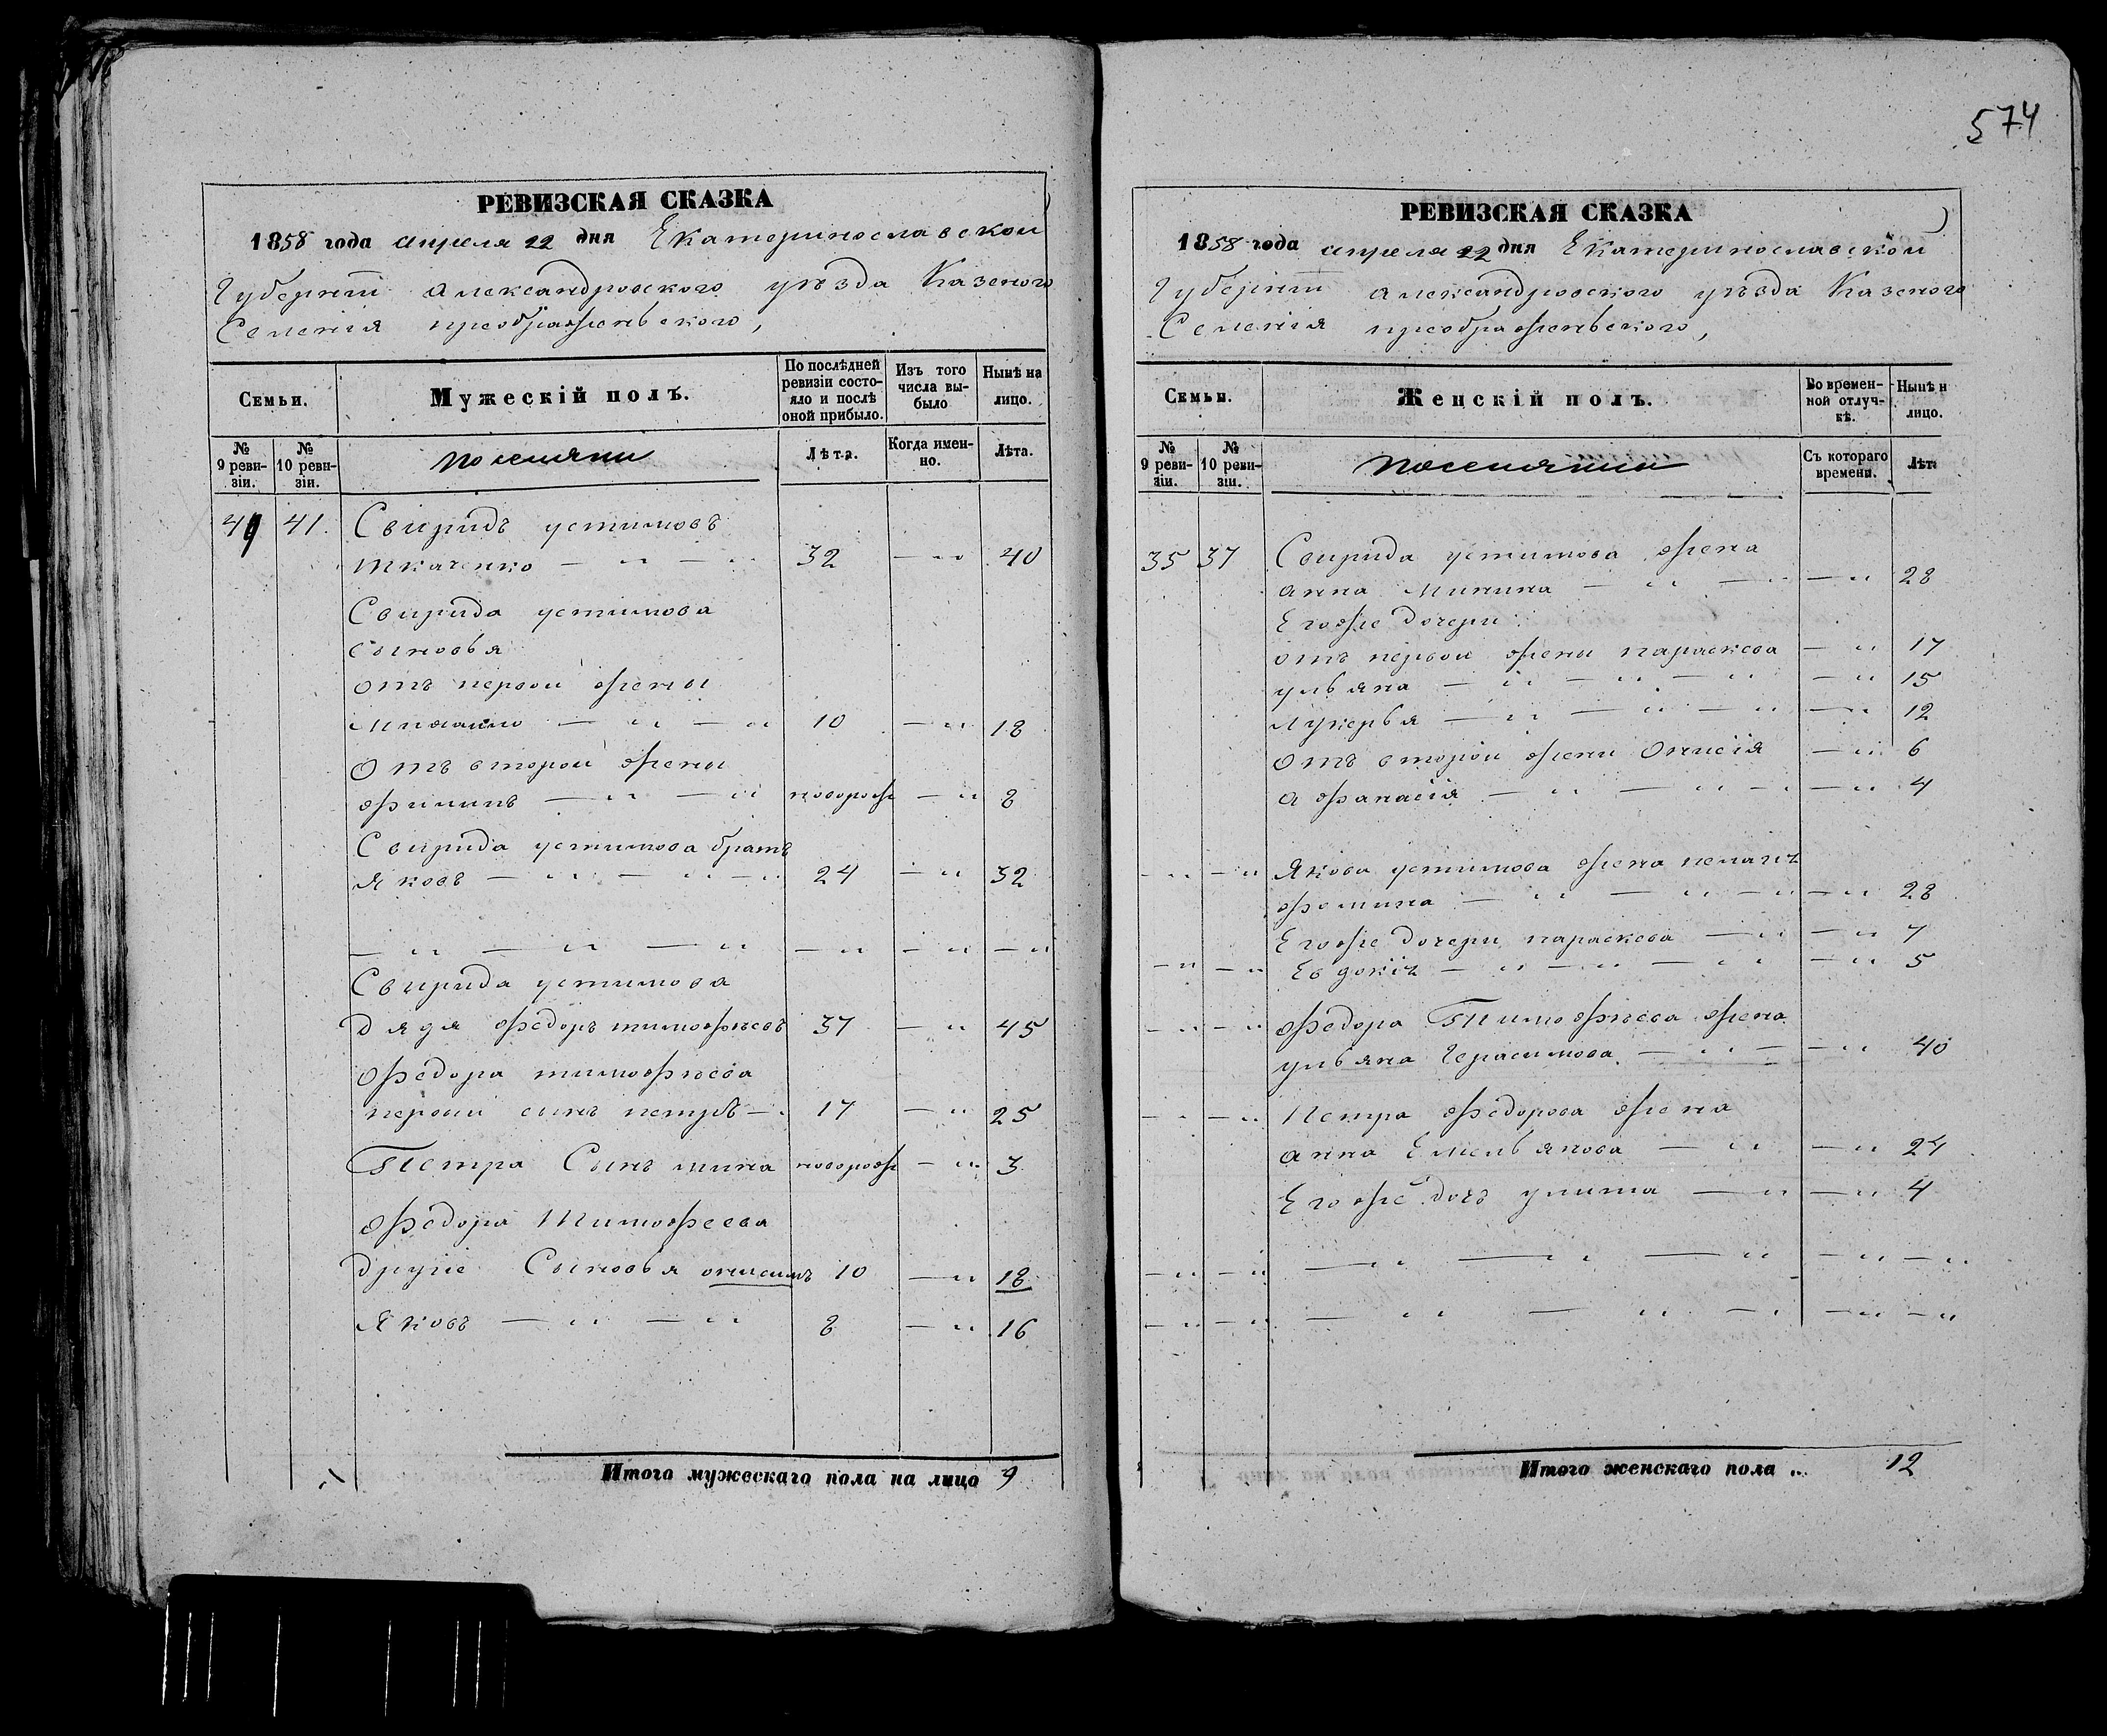 574
РЕВИЗСКАЯ СКАЗКА
1858 года апреля 22 дня Екатеринославской
Губерніи александровского уѣзда Казеного
Селенія преображеньского,
Семьи.
Мужескій полъ.
По послѣдней ревизіи состояло и послѣ оной прибыло.
Изъ того числа выбыло
Нынѣ на лицо.
№ 9 ревизіи.
№ 10 ревизіи.
поселяни
Лѣта.
Когда именно.
Лѣта.
41. Свиридъ устимовъ
ткаченко — " — " 32 — " 40
Свирида устимова
сыновья
отъ первой жены
михаило — " — " 10 — " 18
Отъ второй жены
филипъ — " — " наворож — " 8
Свирида устимова братъ
яковъ — " — " — " 24 — " 32
— " — " — " — " — " — "
Свирида устимова
дядя федоръ тимофѣевъ 37 — " 45
Федора тимофѣева
первый синъ петръ — " 17 — " 25
Петра Сынъ мина новорож — " 3
федора Тимофеева
другіе Сыновья онисимъ 10 — " 18
яковъ — " — " 8 — " 16
Итого мужескаго пола на лицо 9
РЕВИЗСКАЯ СКАЗКА
1858 года апреля 22 дня Екатеринославской
Губерніи александровского уѣзда Казеного
Селенія преображеньского,
Семьи.
Женскій полъ.
Во временной отлучкѣ.
Нынѣ н лицо.
№ 9 ревизіи.
№ 10 ревизіи.
поселяни
Съ котораго времени.
Лѣт
35 37 Свирида устимова жена
анна минина — " — " — " 28
Егоже дочери
отъ первой жены параскева — " 17
ульяна — " — " — " — " 15
лукерья — " — " — " — " 12
Отъ второй жени Онисія — " 6
афанасія — " — " — " — " 4
— " — " Якова устимова жена пелагія
фомина — " — " — " — " 28
Егоже дочери параскева — " — " 7
— " — " Евдокія — " — " — " — " 5
— " — " федора Тимофѣева жена
ульяна Герасимова — " — " — " 40
— " — " Петра федорова жена
анна Емельянова — " — " 24
Егоже дочь улита — " — " 4
— " — " — " — " — " — " — "
— " — " — " — " — " — " — "
Итого женскаго пола .. 12